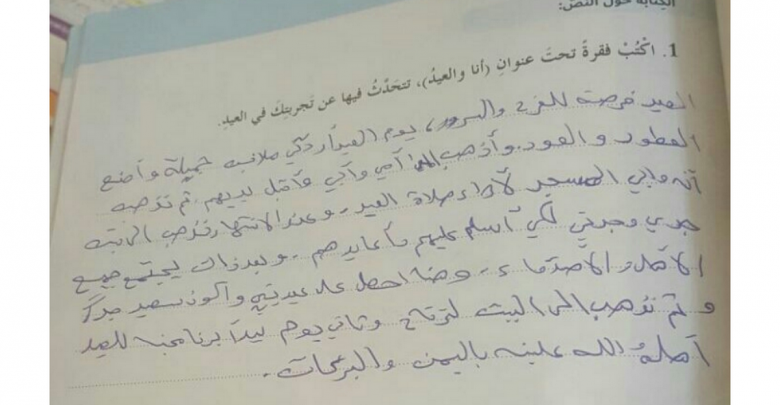 الكتابة حول النص:
1. اكْتُبْ فقرةً تحتَ عنوانِ (أنا والعيدُ)، تتحَدَّثُ فيها عن تجربتِكَ في العيدِ.
العيد فرصة للفرح والسرور، يوم العيد أرتدي ملابس جميلة وأضع
العطور والعود. وأذهب إلى أمي وأبي فأقبل يديهم، ثم نذهب
أنه وابي المسجد لأداء صلاة العيد. وعند الانتهاء نذهب الى بيت
جدي وجدتي لكي أسلم عليهم وأعايدهم. وبعد ذلك يجتمع جميع
الأهل والأصدقاء. وهنا احصل على عيديتي وأكون سعيد جداً
وثم نذهب الى البيت لنرتاح وثاني يوم يبدأ برنامجنه للعيد
أهلهُ الله علينه باليمن والبركات.